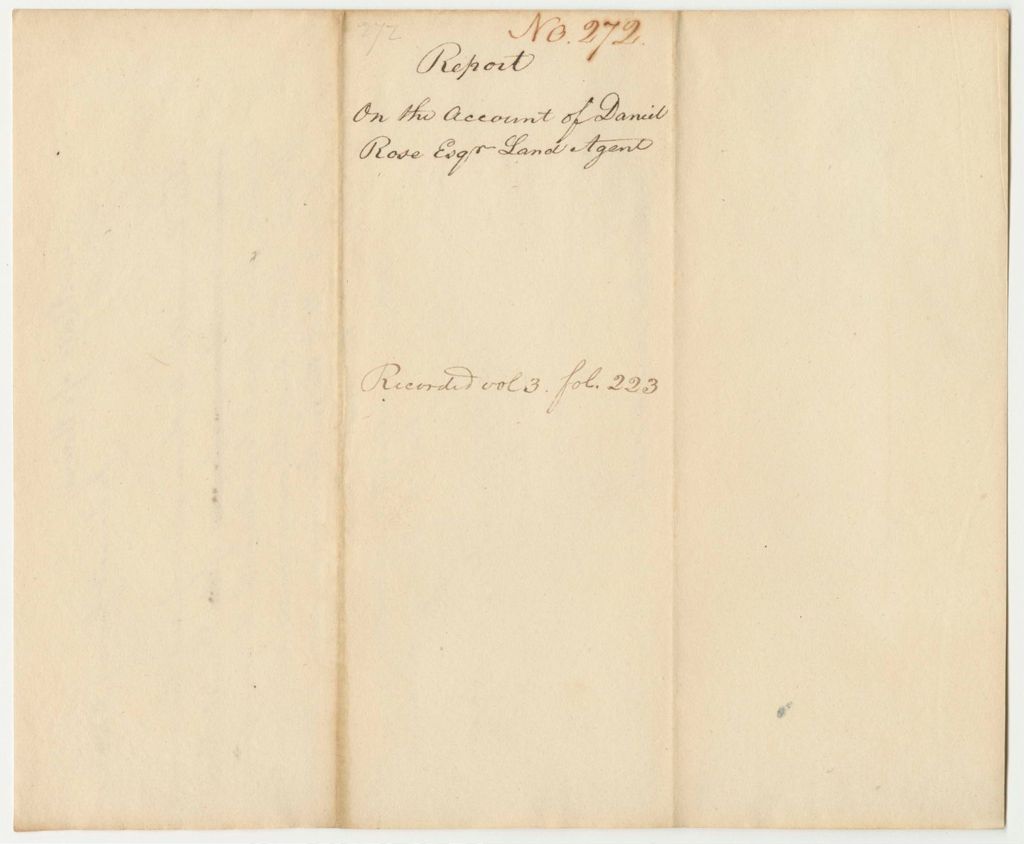 272
No. 272.
Report
On the Account of Daniel
Rose Esqr Land Agent
Recorded vol 3. fol. 223